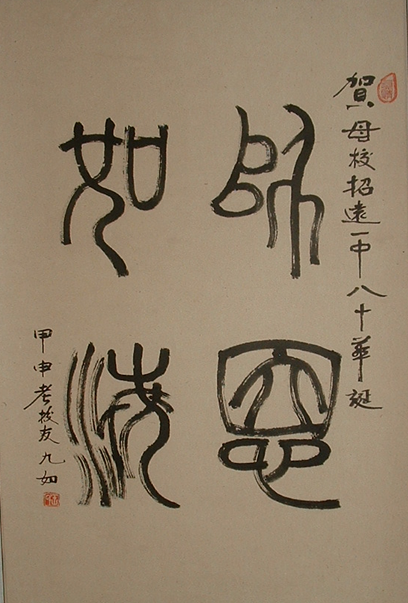 賀母校招遠一中八十華誕
師恩
如海
甲申老校友九如